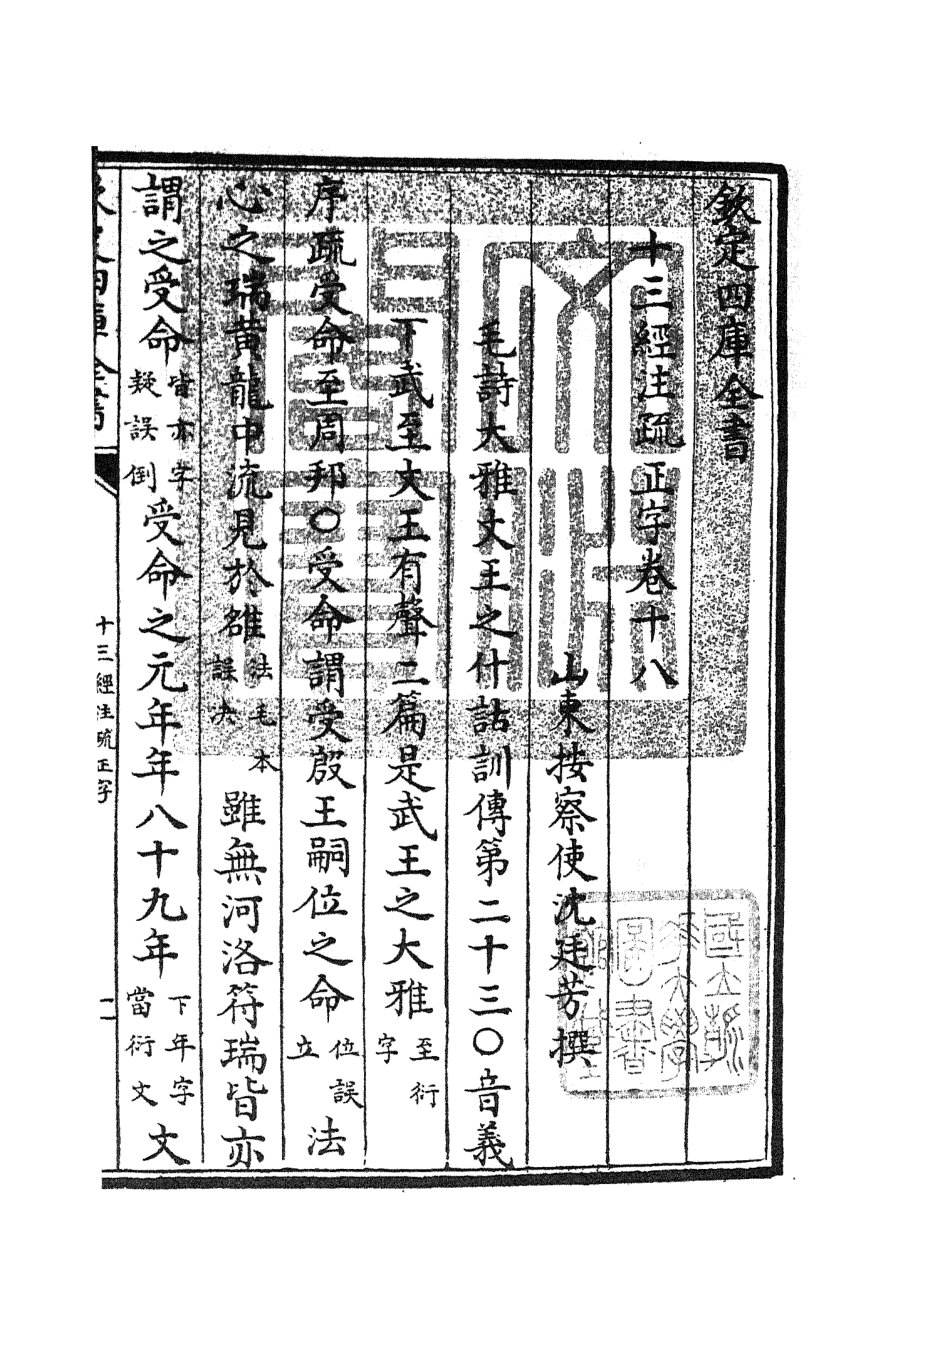 欽定四庫全書
十三經注疏正字卷十八
山東按察使沈廷芳撰
毛詩大雅文王之什詁訓傳第二十三○音義
下武至文王有聲二篇是武王之大雅至衍字
序疏受命至周邦○受命謂受殷王嗣位之命位誤立法
心之瑞黄龍中流見於雒法毛本誤决雖無河洛符瑞皆亦
謂之受命皆亦字疑誤倒受命之元年年八十九年下年字當衍文文
十三經注疏正字